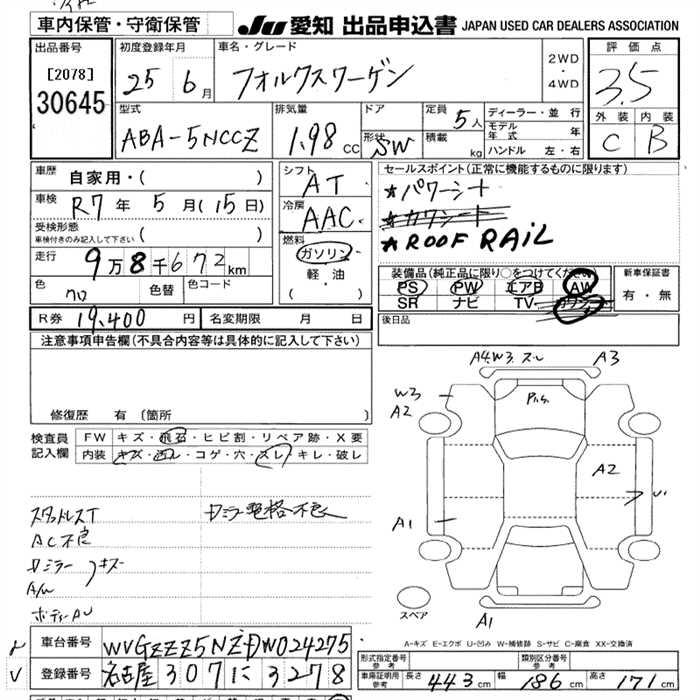 車内保管・守衛保管
JU 愛知 出品申込書 JAPAN USED CAR DEALERS ASSOCIATION
出品番号
[2078]
30645
初度登録年月
25 6月
車名・グレード
フォルクスワーゲン
2WD
・
4WD
評価点
3.5
外装 内装
C B
型式
ABA-5NCCZ
排気量
1.98 CC
ドア
形状
SW
定員
5人
積載
kg
ディーラー・並行
モデル年式 年
ハンドル 左・右
車歴
自家用・( )
車検
R7年 5月(15日)
受検形態
車検付きのみ記入して下さい ( )
走行
9万8千672km
色
クロ
色替
色コード
シフト
AT
冷房
AAC
燃料
ガソリン
・
軽・油
( )
セールスポイント(正常に機能するものに限ります)
★パワーシート
★カワシート
★ROOF RAIL
装備品(純正品に限り○をつけてください)
PS PW エアB AW
SR ナビ TV カワシート
新車保証書
有・無
後日品
R券 19,400円
名変期限 月 日
注意事項申告欄(不具合内容等は具体的に記入して下さい)
修復歴 有(箇所 )
検査員
記入欄
FW キズ・飛石・ヒビ割・リペア跡・X要
内装 キズ・凹レ・コゲ・穴・スレ・キレ・破レ
スタッドレスT
AC不良
ミラー キズ
A/W
ボディー
ミラー電格不良
A4.W3. スレ A3
W3
A2
A2
A1
A1
スペア
A-キズ E-エクボ U-凹み W-補修跡 S-サビ C-腐食 XX-交換済
車台番号
WVGZZZ5NZDW024275
登録番号
名古屋 307 に 3278
形式指定番号
参考
類別区分番号
参考
車庫証明用
参考
長さ 443 cm
幅 186 cm
高さ 171 cm